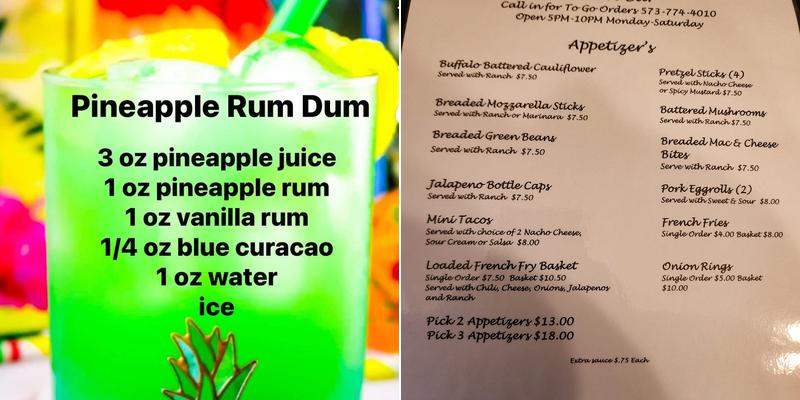 Pineapple Rum Dum
3 oz pineapple juice
1 oz pineapple rum
1 oz vanilla rum
1/4 oz blue curacao
1 oz water
ice
Call in for To Go Orders 573-774-4010
Open 5PM-10PM Monday-Saturday
Appetizer's
Buffalo Battered Cauliflower
Served with Ranch $7.50
Breaded Mozzarella Sticks
Served with Ranch or Marinara $7.50
Breaded Green Beans
Served with Ranch $7.50
Jalapeno Bottle Caps
Served with Ranch $7.50
Mini Tacos
Served with choice of 2 Nacho Cheese,
Sour Cream or Salsa $8.00
Loaded French Fry Basket
Single Order $7.50 Basket $10.50
Served with Chili, Cheese, Onions, Jalapenos
and Ranch
Pick 2 Appetizers $13.00
Pick 3 Appetizers $18.00
Pretzel Sticks (4)
Served with Nacho Cheese
or Spicy Mustard $7.50
Battered Mushrooms
Served with Ranch $7.50
Breaded Mac & Cheese
Bites
Serve with Ranch $7.50
Pork Eggrolls (2)
Served with Sweet & Sour $8.00
French Fries
Single Order $4.00 Basket $8.00
Onion Rings
Single Order $5.00 Basket
$10.00
Extra sauce $.75 Each